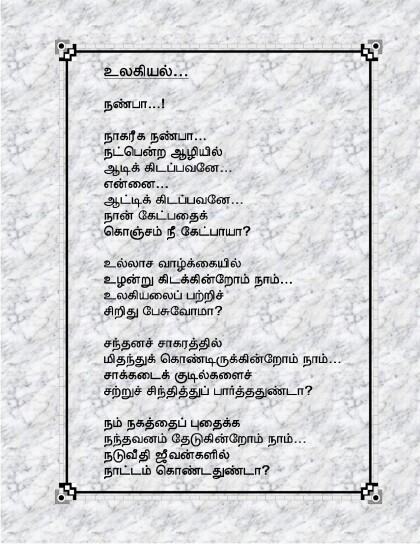 உலகியல்...
நண்பா...!
நாகரீக நண்பா...
நட்பென்ற ஆழியில்
ஆடிக் கிடப்பவனே...
என்னை...
ஆட்டிக் கிடப்பவனே...
நான் கேட்பதைக்
கொஞ்சம் நீ கேட்பாயா?
உல்லாச வாழ்க்கையில்
உழன்று கிடக்கின்றோம் நாம்...
உலகியலைப் பற்றிச்
சிறிது பேசுவோமா?
சந்தனச் சாகரத்தில்
மிதந்துக் கொண்டிருக்கின்றோம் நாம்...
சாக்கடைக் குடில்களைச்
சற்றுச் சிந்தித்துப் பார்த்ததுண்டா?
நம் நகத்தைப் புதைக்க
நந்தவனம் தேடுகின்றோம் நாம்...
நடுவீதி ஜீவன்களில்
நாட்டம் கொண்டதுண்டா?